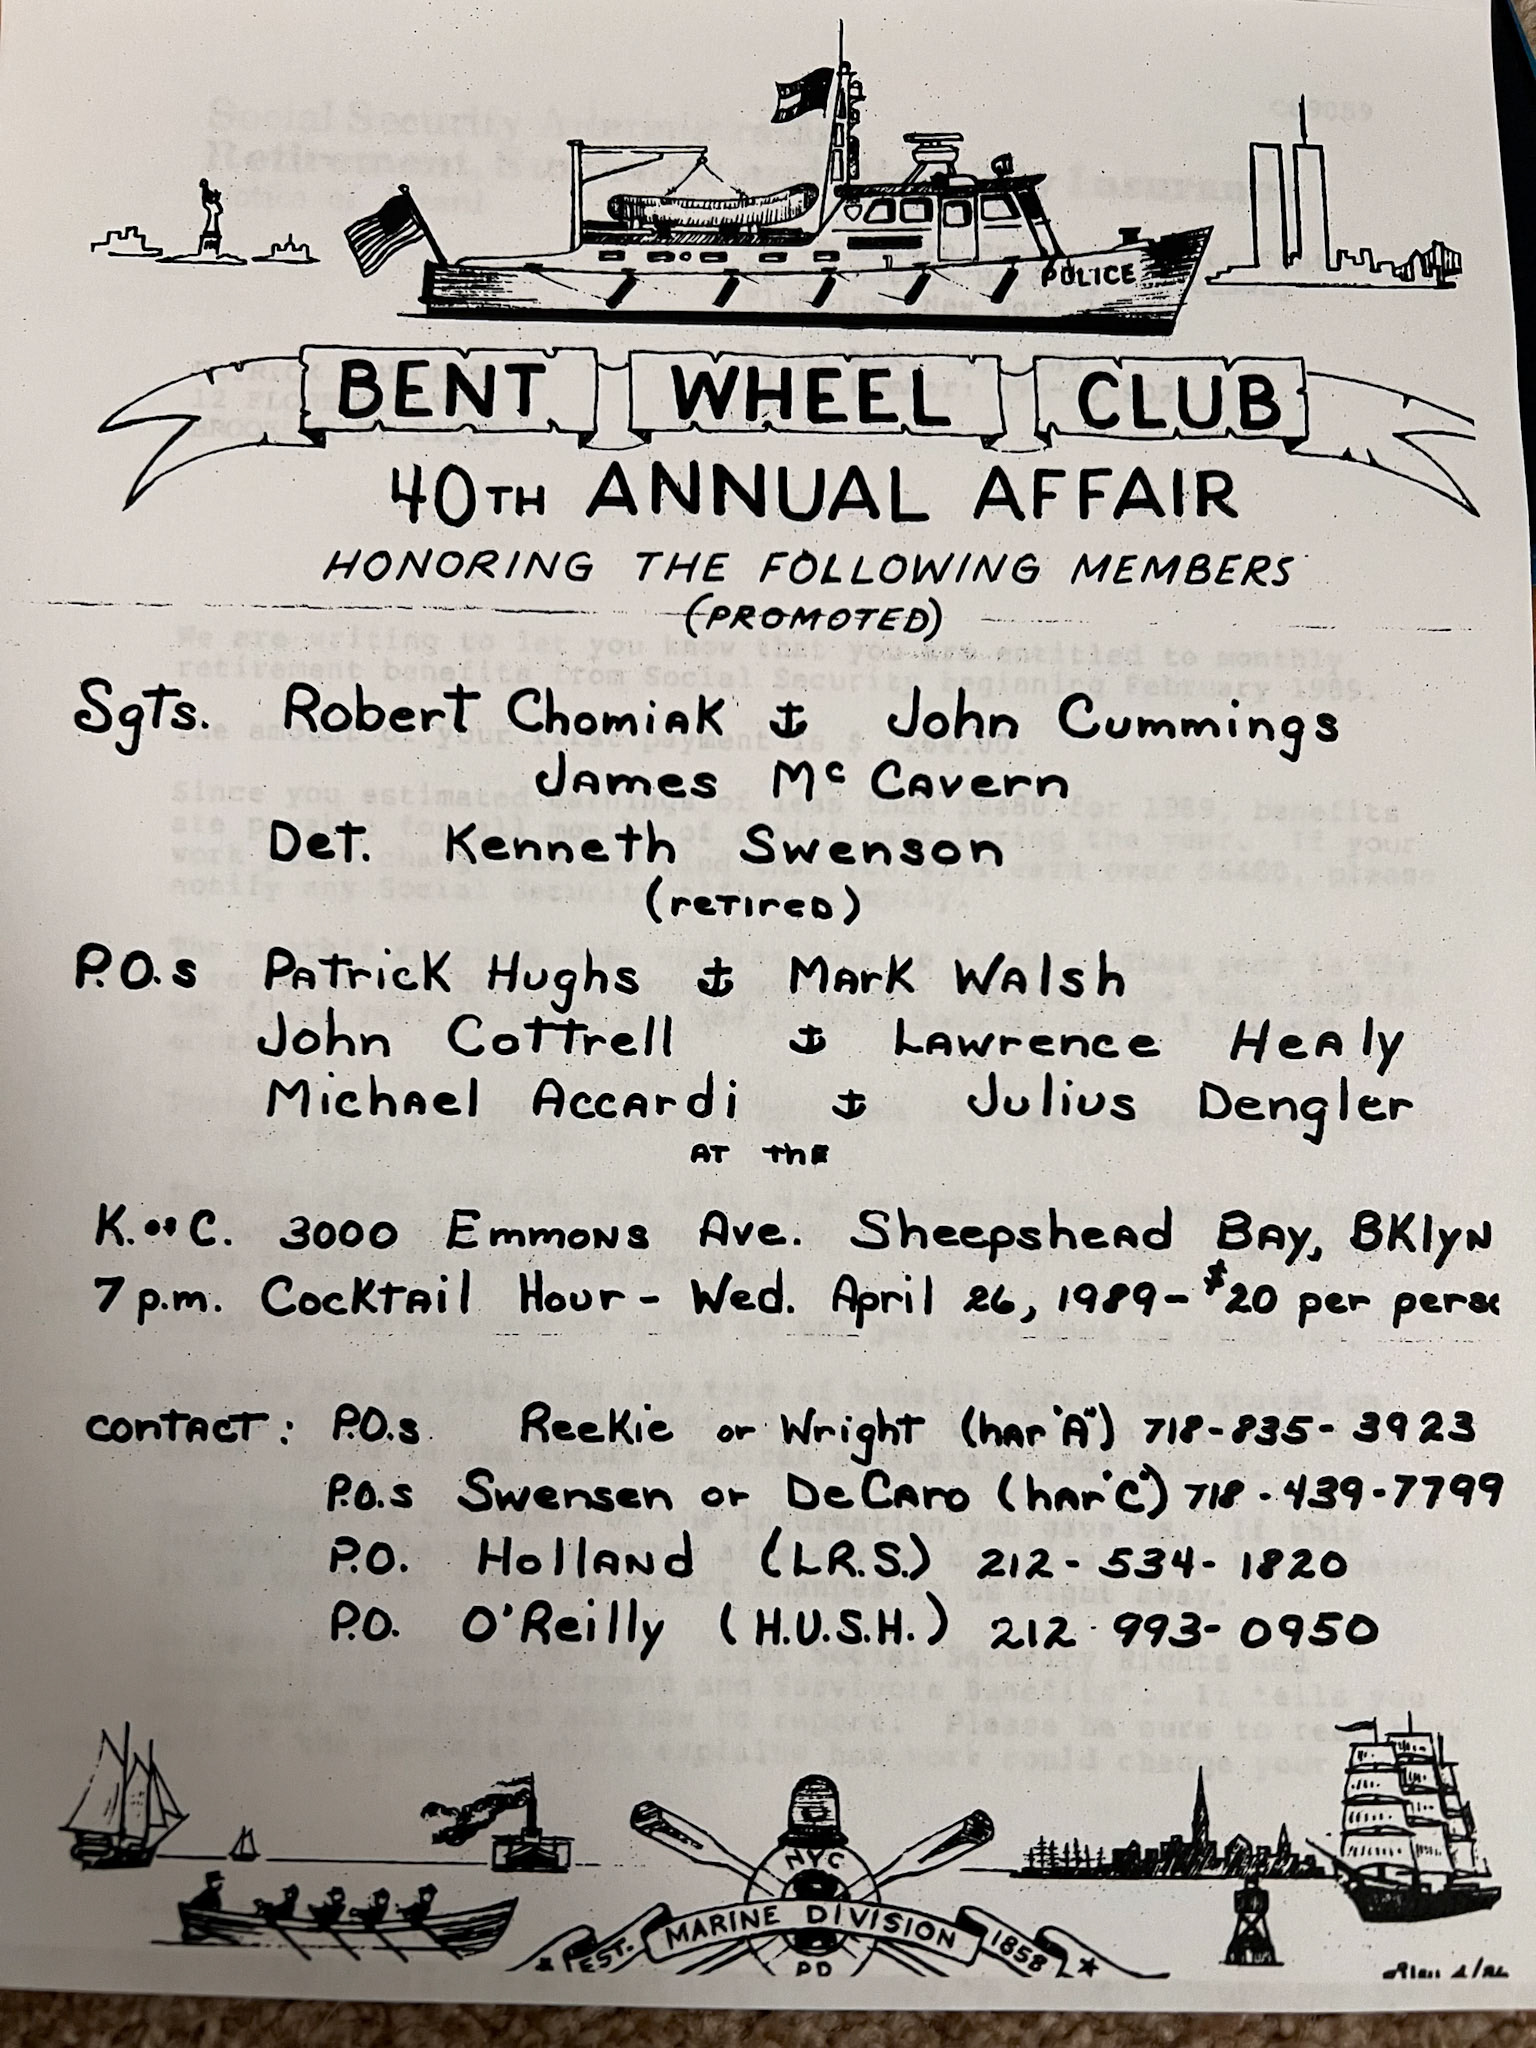 POLICE
BENT WHEEL CLUB
40TH ANNUAL AFFAIR
HONORING THE FOLLOWING MEMBERS
(PROMOTED)
Sgts. Robert Chomiak ⚓ John Cummings
James Mc Cavern
Det. Kenneth Swenson
(retired)
P.O.s Patrick Hughs ⚓ Mark Walsh
John Cottrell ⚓ Lawrence Healy
Michael Accardi ⚓ Julius Dengler
AT the
K. of C. 3000 Emmons Ave. Sheepshead Bay, BKlyn
7 p.m. Cocktail Hour - Wed. April 26, 1989 - $20 per perso
contact: P.O.s Reekie or Wright (har "A") 718-835-3923
P.O.s Swensen or DeCaro (har "C") 718-439-7799
P.O. Holland (L.R.S.) 212-534-1820
P.O. O'Reilly (H.U.S.H.) 212-993-0950
NYC
MARINE DIVISION
EST. 1858
PD